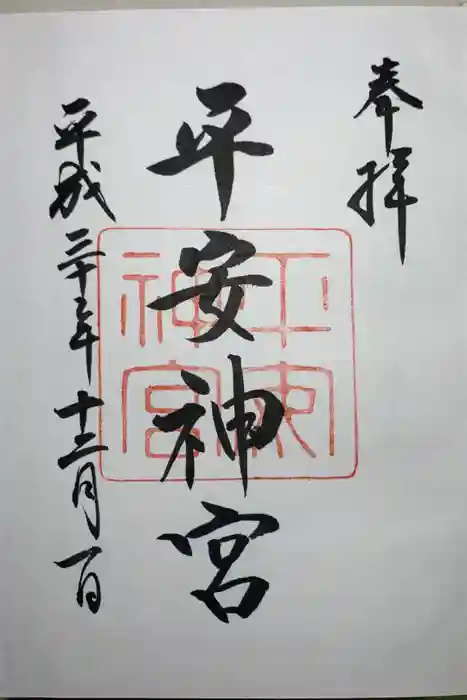 奉拝
平安神宮
平成三十年十二月一日
平安神宮